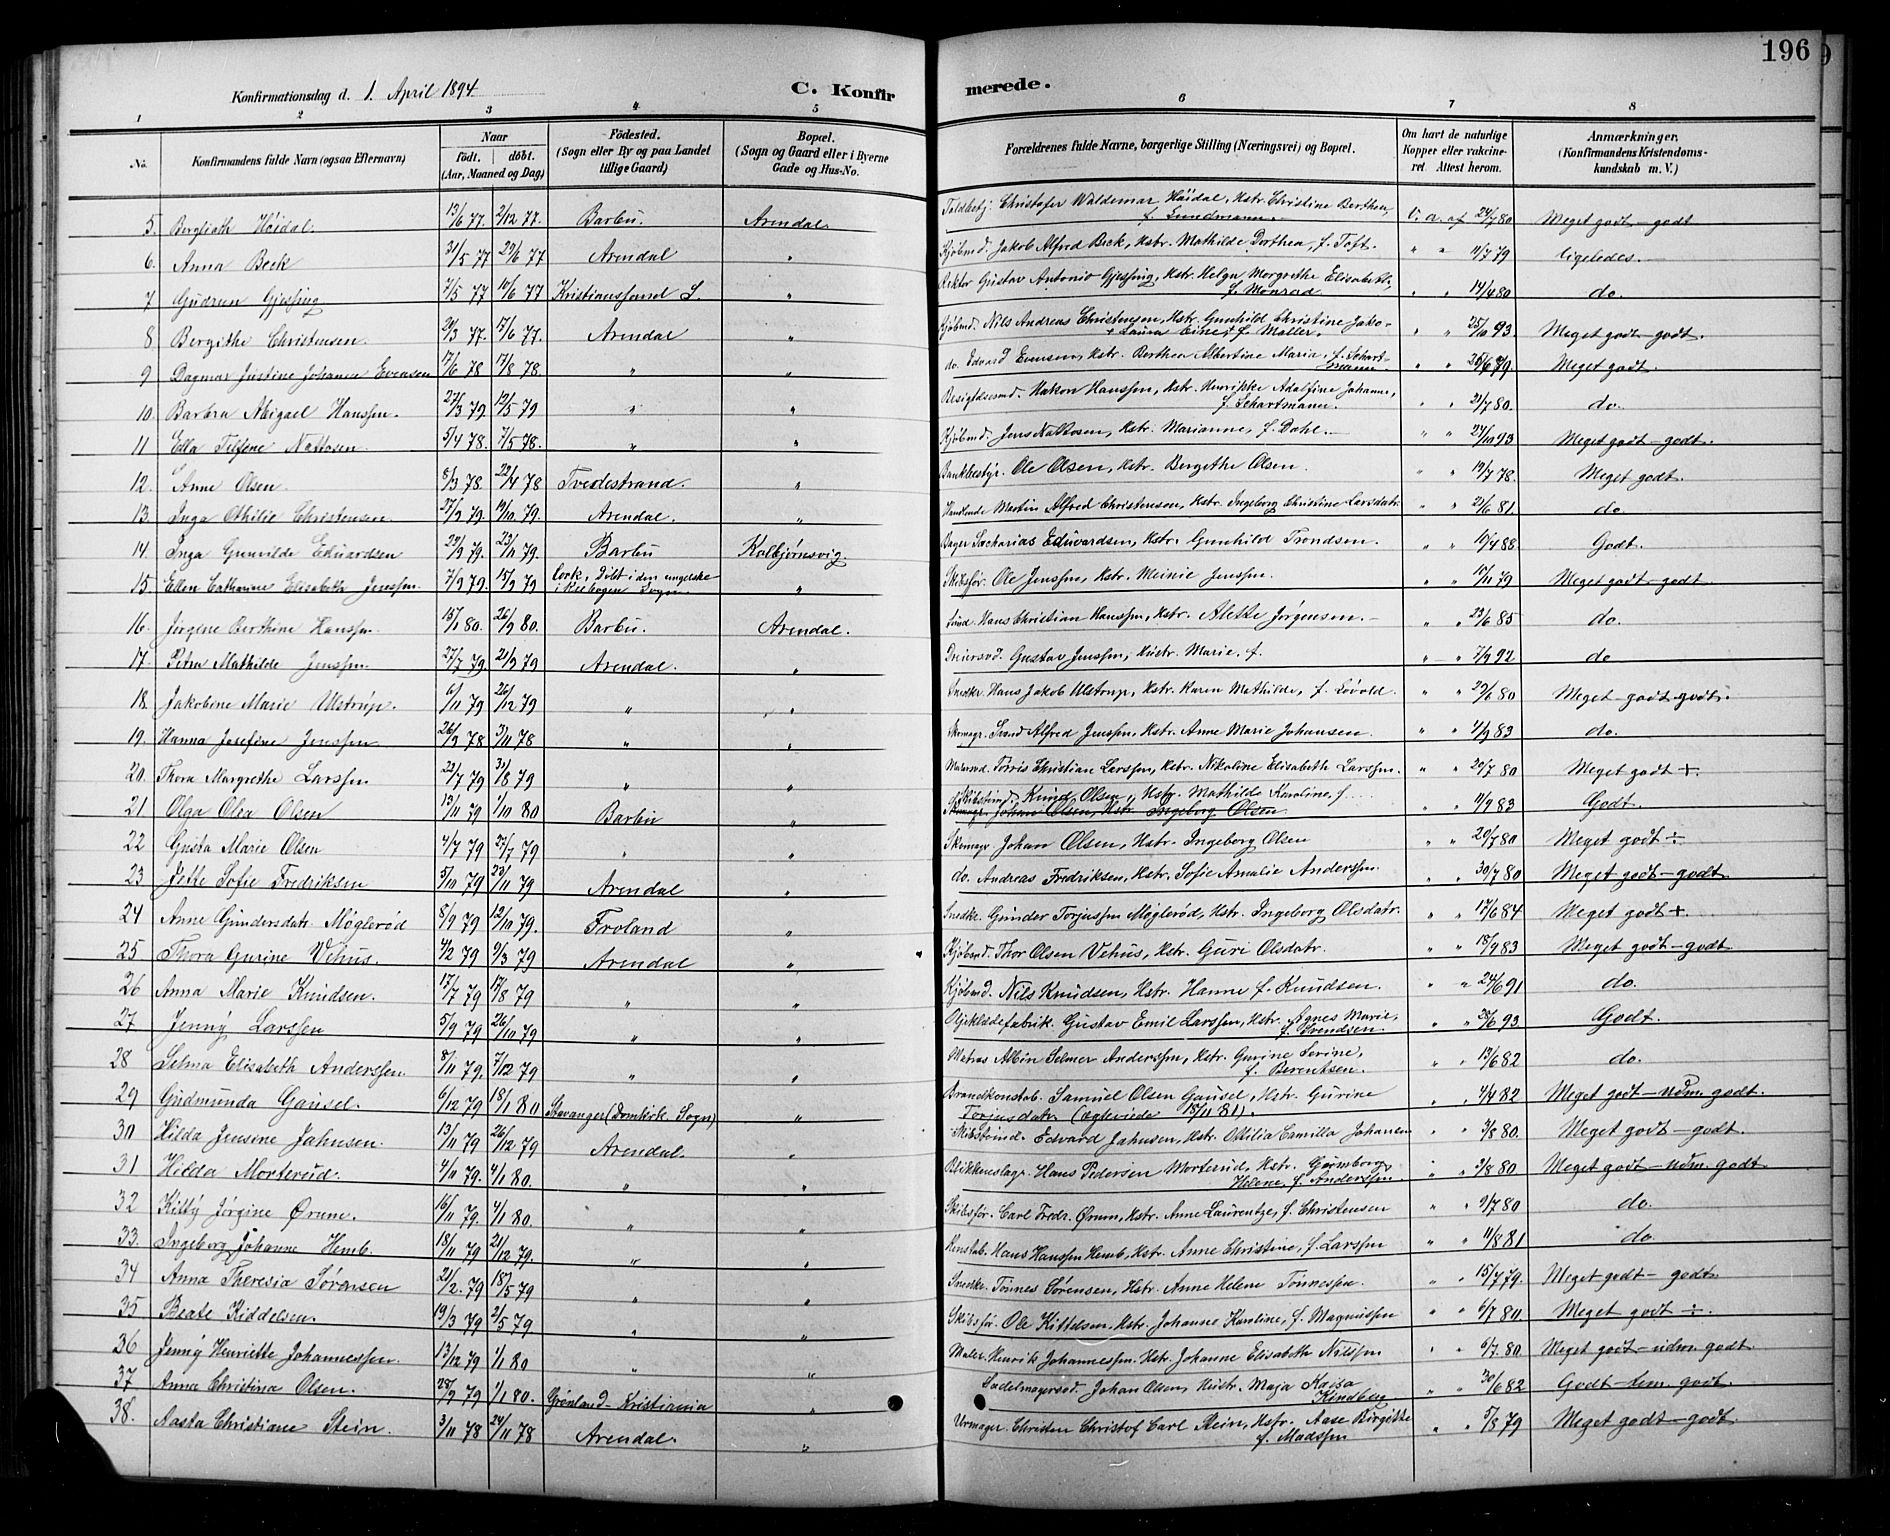 196
Konfirmationsdag d. 1. April 1894.
C. Konfirmerede.
1 2 3 4 5 6 7 8
No. Konfirmandens fulde Navn (ogsaa Efternavn) Naar födt. döbt. (Aar, Maaned og Dag) Födested. (Sogn eller By og paa Landet tillige Gaard) Bopæl. (Sogn og Gaard eller i Byerne Gade og Hus-No. Forældrenes fulde Navne, borgerlige Stilling (Næringsvei) og Bopæl. Om havt de naturlige Kopper eller vakcineret. Attest herom. Anmærkninger. (Konfirmandens Kristendomskundskab m. V.)
5. Berglioth Höidal. 13/6 77. 2/12 77. Barbu. Arendal. Toldbetj. Christofer Waldemar Höidal, Hstr. Christine Berthea, f. Gundersen. v. a. af 24/7 80 Meget godt - godt
6. Anna Beck 31/5 77 29/6 77 Arendal " Kjøbmd. Jakob Alfred Beck, Hstr. Mathilde Dorthea, f. Toft. " " 11/7 79 ligeledes.
7 Gudrun Gjessing 7/5 77 10/6 77 Kristianssand S. " Rektor Gustav Antonio Gjessing, Hstr. Helga Margrethe Elisabeth, f. Monrad " " 14/4 80 do.
8. Bergithe Christensen. 20/3 77. 17/6 77. Arendal " Kjøbmd. Nils Andreas Christensen, Hstr. Gunhild Christine Jako- + Laura Eine f. Møller. " " 25/10 93. Meget godt - godt.
9 Dagmar Justine Johanne Evensen 17/6 78 17/8 78. " " do. Edvard Evensen, Hstr. Berthea Albertine Maria, f. Schartmann " " 26/6 79. Meget godt.
10. Barbra Abigael Hanssen. 27/3 79. 12/5 79 " " Besigtelsesmd. Hakon Hanssen, Hstr. Henrikke Adolfine Johanne, f. Schartmann. " " 21/7 80. do.
11 Ella Tilfine Nattosen. 5/4 78. 7/5 78. " " Kjøbmd. Jens Nattosen, Hstr. Marianne, f. Dahl. " " 24/10 93 Meget godt - godt.
12. Anne Olsen. 8/3 78. 22/4 78 Tvedestrand. " Bankbestyr. Ole Olsen, Hstr. Bergethe Olsen. " " 19/7 78. Meget godt.
13. Inga Othilie Christensen 27/9 79. 19/10 79. Arendal. " Handlende Martin Alfred Christensen, Hstr. Ingeborg Christine Larsdatr. " " 21/6 81. do.
14. Inga Gunvilde Eduardsen 22/9 79. 23/11 79 Barbu Kolbjørnsvig Bager Sacharias Eduvardsen, Hstr. Gunhild Trondsen. " " 10/4 88 Godt.
15. Ellen Catharine Elisabeth Jenssen. 7/9 79. 15/9 79 Cork, Döbt i den engelske " Skibsför. Ole Jenssen, Hstr. Meinie Jenssen. " " 17/11 79 Meget godt - godt
16. Jørgine Berthine Hanssen. 15/1 80. 26/9 80. Barbu. Arendal. Hans Christian Hanssen, Hstr. Alette Jörgensen. " " 23/6 85 do.
17. Petra Mathilde Jenssen 27/7 79 21/9 79 Arendal. " Dreiersvd. Gustav Jenssen, Hustr. Marie, f. " " 7/9 92 do
18. Jakobine Marie Ulstrup. 6/11 79 26/12 79 " " Snedkr. Hans Jakob Ulstrup, Hstr. Karen Mathilde, f. Lövold. " " 22/6 80 Meget godt - godt.
19. Hanna Josefine Jenssen 26/9 78 3/11 78 " " Skomagr. Svend Alfred Jenssen, Hstr. Anne Marie Johansen. " " 4/9 83 do.
20. Thora Margrethe Larssen 22/7 79 31/8 79 " " Matersvd. Torris Christian Larssen, Hstr. Nikoline Elisabeth Larssen. " " 20/7 80 Meget godt +.
21 Olga Olea Olsen 13/11 79 1/10 80 Barbu " Skibstimd. Knud Olsen, Hstr. Mathilde Karoline, f. .... Skomagr. Johan Olsen, Hstr. Ingeborg Olsen " " 11/9 83 Godt.
22 Gusta Marie Olsen 4/7 79 27/7 79 " " Skomagr Johan Olsen, Hstr. Ingeborg Olsen " " 20/7 80 Meget godt ÷
23 Jette Sofie Fredriksen 5/10 79 23/11 79 Arendal " do. Andreas Fredriksen, Hstr. Sofie Amalie Anderssen " " 30/7 80 Meget godt - godt
24 Anne Gundersdatr. Møglerød 8/9 79 12/10 79. Froland " Snedkr. Gunder Torjussen Møglerød, Hstr. Ingeborg Olsdatr. " " 17/6 84 Meget godt +.
25 Thora Gurine Vehus. 4/2 79 9/3 79 Arendal " Kjøbmd. Thor Olsen Vehus, Hstr. Guri Olsdatr. " " 18/9 83 Meget godt - godt
26 Anna Marie Knudsen. 17/7 79 17/8 79 " " Kjøbmd. Nils Knudsen, Hstr. Hanne f. Knudsen. " " 24/6 91 do.
27 Jenny Larssen 5/9 79 26/10 79 " " Oljeklædefabrik. Gustav Emil Larssen, Hstr. Agnes Marie, f. Svendsen. " " 28/6 93 Godt.
28 Selma Elisabeth Anderssen. 8/11 79 7/12 79 " " Matros Albin Selmer Anderssen, Hstr. Gurine Serine, f. Berentsen. " " 13/6 82 do.
29 Gudmunda Gausel. 6/12 79 18/1 80 Stavanger (Domkirk. Sogn) " Brandkonstab. Samuel Olsen Gausel, Hstr. Gurine Torjusdatr. (ægteviede 15/11 81). " " 4/4 82 Meget godt - udm. godt.
30 Hilda Jensine Jahnsen. 13/11 79 26/12 79 Arendal. " Skibstimd. Edvard Jahnsen, Hstr. Ottilia Camilla Johansen " " 3/8 80. Meget godt - godt.
31 Hilda Morterud. 4/11 79. 4/1 80. " " Blikkenslagr. Hans Pedersen Morterud, Hstr. Gunborg Helene, f. Anderssen. " " 3/8 80 Meget godt - udm. godt
32 Kitty Jörgine Ørum. 16/11 79. 4/1 80. " " Skibsför. Carl Fredr. Ørum, Hstr. Anne Laurentze, f. Christensen " " 9/7 80 do.
33. Ingeborg Johanne Hemb. 18/11 79 21/12 79. " " Konstab. Hans Hanssen Hemb, Hstr. Anne Christine, f. Larssen " " 11/8 81 do.
34 Anna Theresia Sörensen 21/2. 79 18/5 79 " " Snedkr. Tönnes Sörensen, Hstr. Anne Helene Tönnessen. " " 15/7 79. Meget godt - godt.
35 Beate Kiddelsen. 19/3 79 2/5 79 " " Skibsför. Ole Kittelsen. Hstr. Johanne Karoline, f. Magnussen " " 6/7 80 Meget godt ÷.
36 Jenny Henriette Johannessen. 13/12 79 1/1 80 " " Maler. Henrik Johannessen. Hstr. Johanne Elisabeth Nilssen " " 6/7. 80. Meget godt - udm. godt.
37. Anna Christina Olsen. 28/9 79 1/1 80. Grønland - Kristiania " Sadelmagersvd. Johan Olsen, Hustr. Maja Kaisa Kindberg " " 30/6 82 Godt - tem. godt.
38. Aasta Christiane Stein. 3/11 78 24/11 78 Arendal. " Urmager. Christen Christof Carl Stein, Hstr. Aase Birgitte f. Madssen " " 5/8 79 Meget godt - godt.